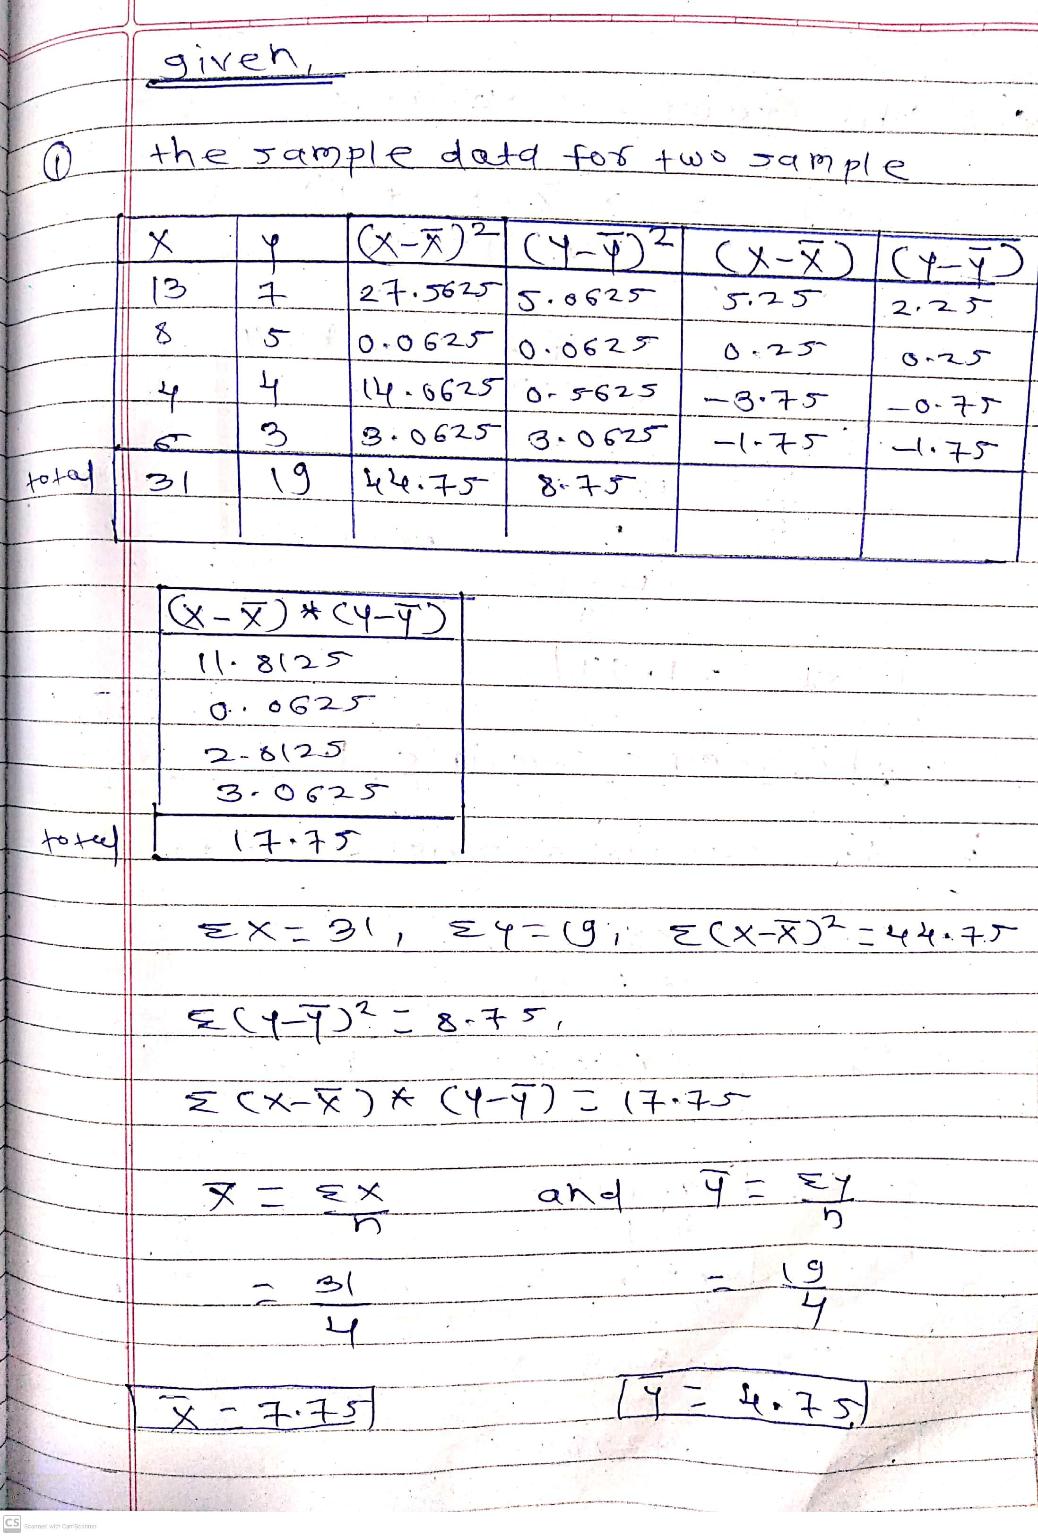 given,
① the sample data for two sample
X Y (X-x̄)² (Y-ȳ)² (X-x̄) (Y-ȳ)
13 7 27.5625 5.0625 5.25 2.25
8 5 0.0625 0.0625 0.25 0.25
4 4 14.0625 0.5625 -3.75 -0.75
6 3 3.0625 3.0625 -1.75 -1.75
total 31 19 44.75 8.75
(X-x̄)*(Y-ȳ)
11.8125
0.0625
2.8125
3.0625
total 17.75
ΣX=31, ΣY=19; Σ(X-x̄)²=44.75
Σ(Y-ȳ)²=8.75,
Σ(X-x̄)*(Y-ȳ)=17.75
x̄ = ΣX/n and ȳ = ΣY/n
= 31/4 = 19/4
x̄ = 7.75 ȳ = 4.75
CS Scanned with CamScanner